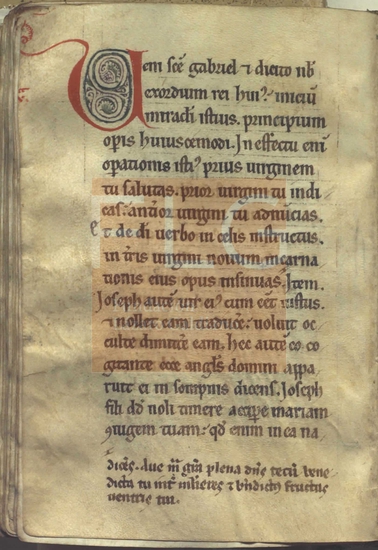 Veni sce gabriel ⁊ dicito nob
exordium rei hui᷒. iniciū
miracli istius. principium
op̄is huiuscemodi. In effectu eni᷒
op̄ationis isti᷒ prius uirginem
tu salutas. prior uirgini tu indi
cas. anterior uirgini tu adnūcias.
et de dī uerbo in celis instructus.
in tr̄is uirgini nouum incarna
tionis eius opus insinuas. Item.
Ioseph autē uir ei᷒ cum eēt iustus
⁊ nollet eam traducere. uoluit oc
culte dimittere eam. hec autē eo co
gitante ecce angls domini appa
ruit ei in sompnis dicens. Ioseph
fili dd noli timere accipe mariam
9iugem tuam. qd enim in ea na
dicēs. Aue mª grª plena dn̄s tecū bene
dicta tu int᷒ mulieres ⁊ bn̄dict᷒ fructus
uentris tui.